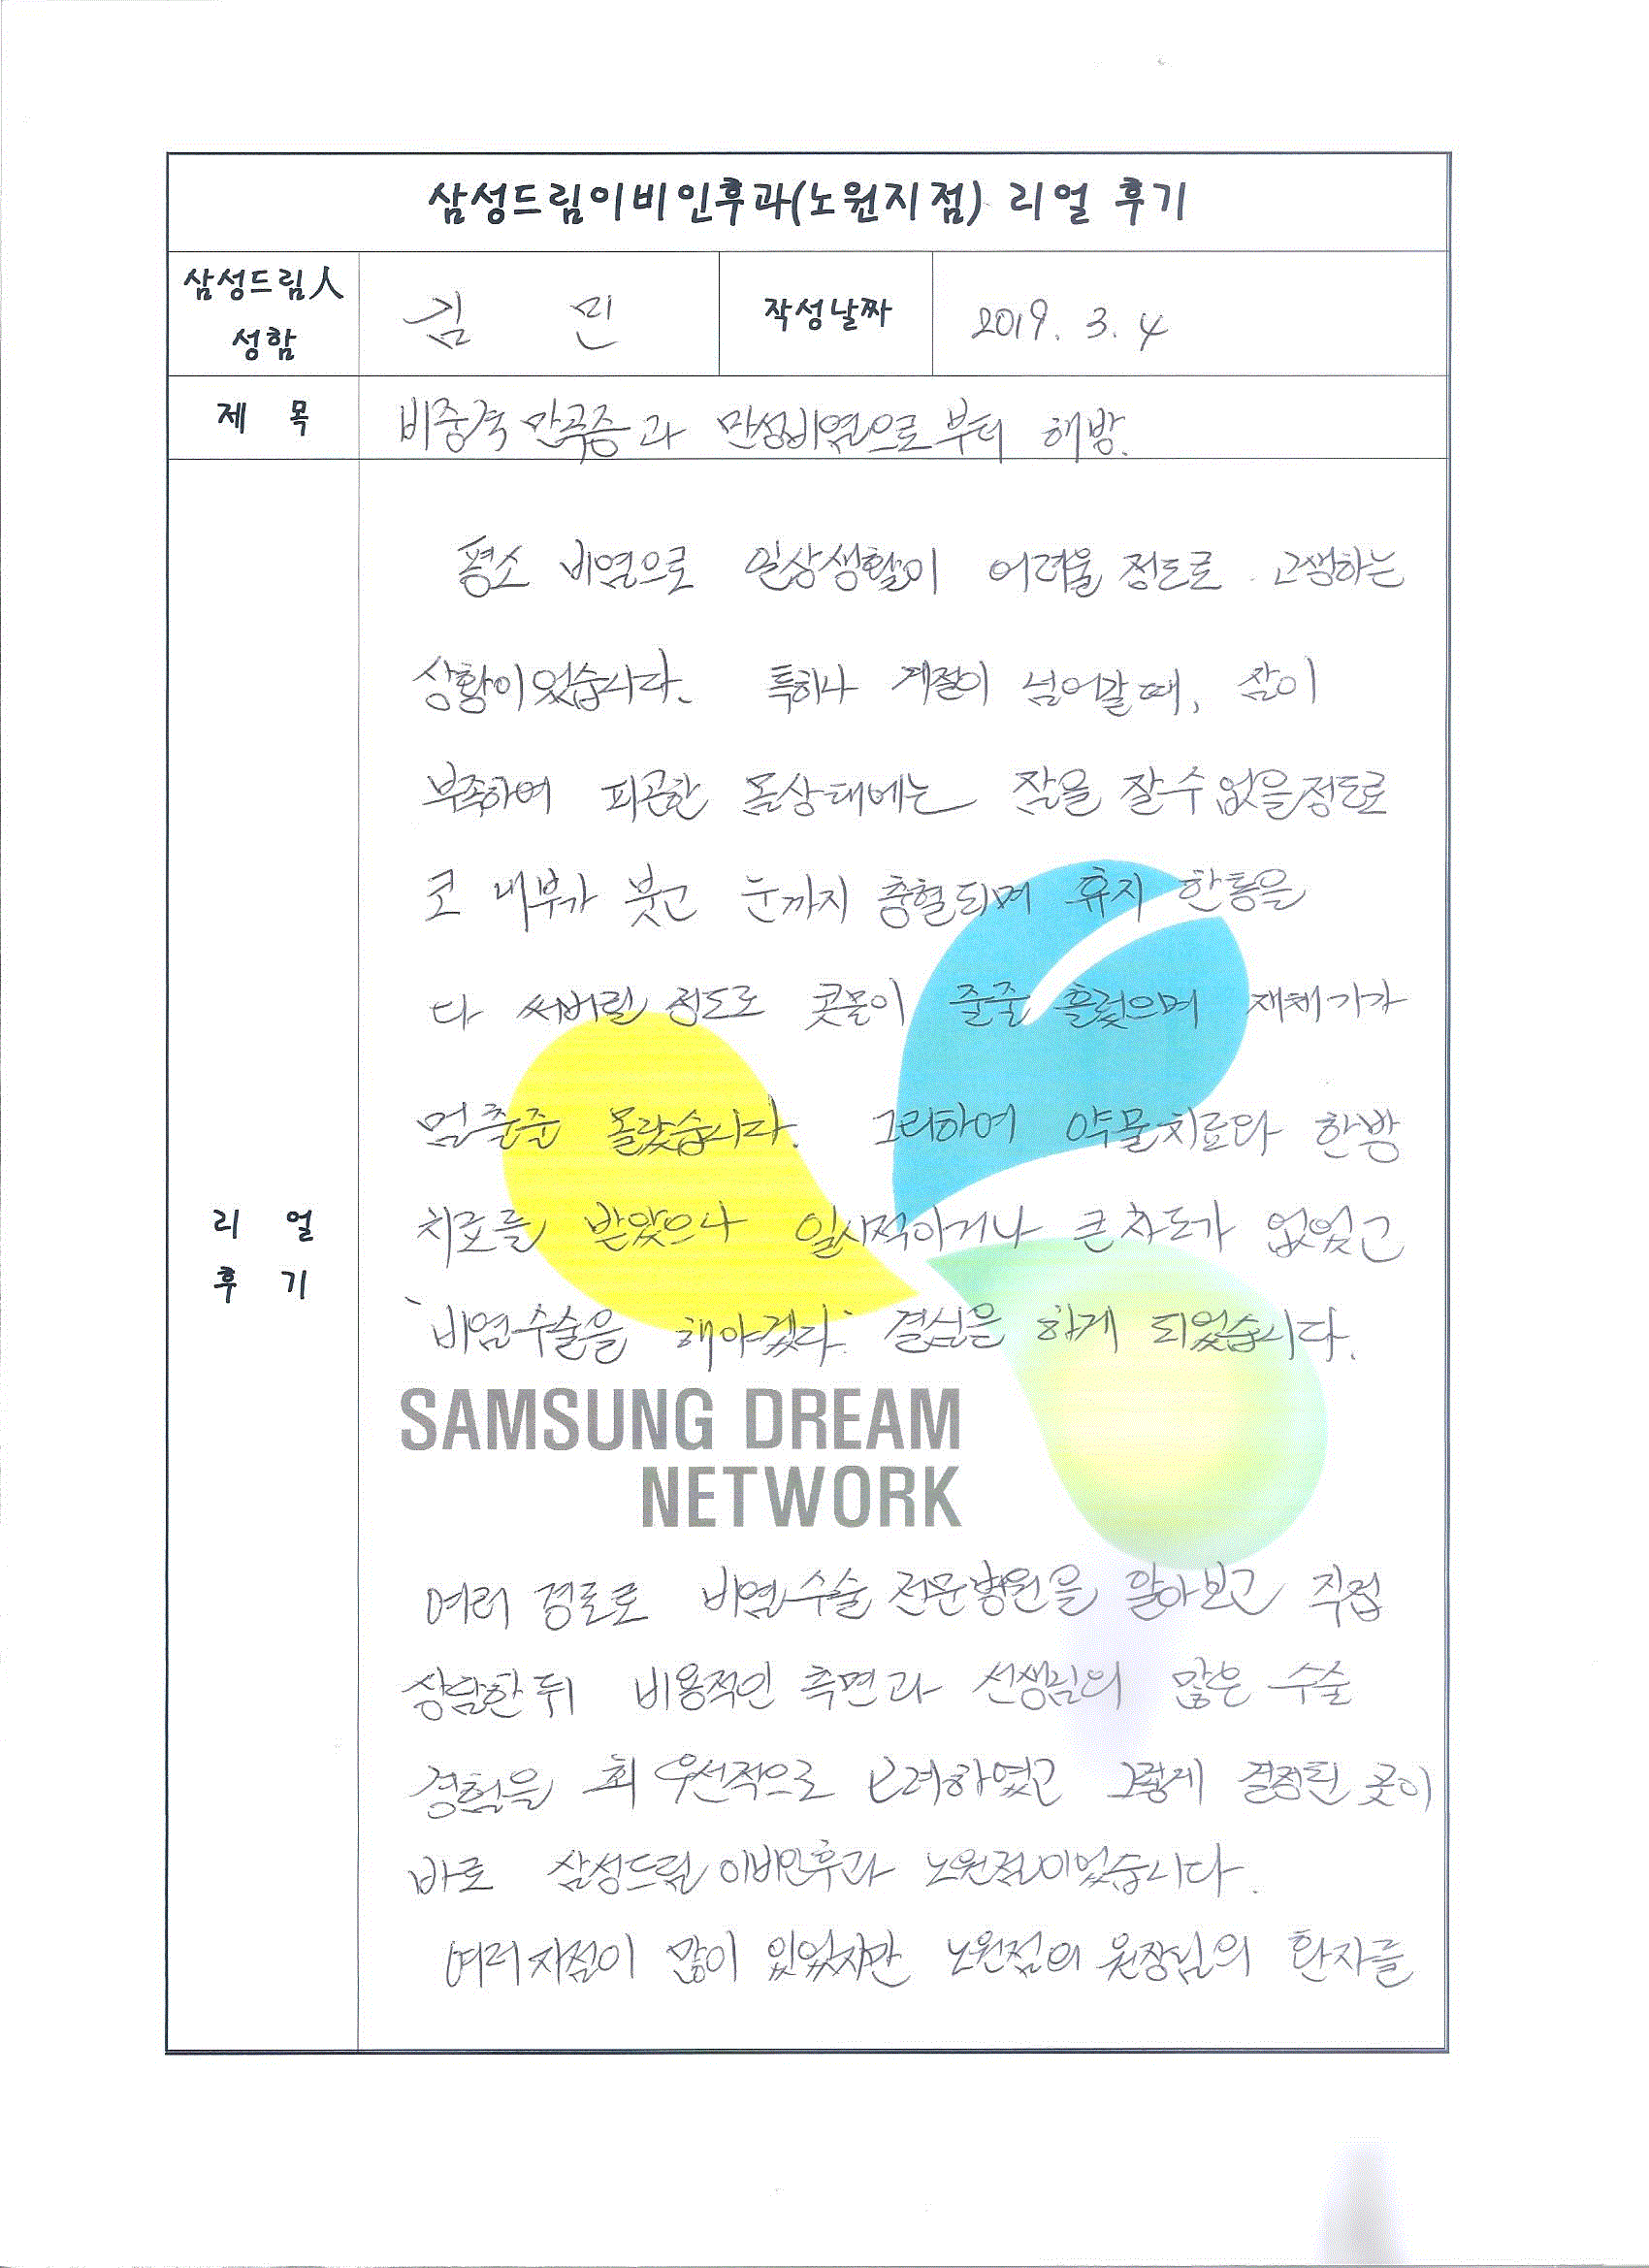 삼성드림이비인후과(노원지점) 리얼 후기
삼성드림人
성함
김 민
작성날짜
2019. 3. 4
제 목
비중격 만곡증과 만성비염으로부터 해방.
리 얼
후 기
평소 비염으로 일상생활이 어려울 정도로 고생하는
상황이었습니다. 특히나 계절이 넘어갈 때, 잠이
부족하여 피곤한 몸상태에는 잠을 잘 수 없을정도로
코 내부가 붓고 눈까지 충혈되며 휴지 한통을
다 써버릴 정도로 콧물이 줄줄 흘렀으며 재채기가
멈출줄 몰랐습니다. 그리하여 약물치료와 한방
치료를 받았으나 일시적이거나 큰 차도가 없었고
'비염수술을 해야겠다' 결심을 하게 되었습니다.
SAMSUNG DREAM
NETWORK
여러 경로로 비염수술 전문병원을 알아보고 직접
상담한 뒤 비용적인 측면과 선생님의 많은 수술
경험을 최우선적으로 고려하였고 그렇게 결정된 곳이
바로 삼성드림이비인후과 노원점이었습니다.
여러지점이 많이 있었지만 노원점의 원장님의 환자를